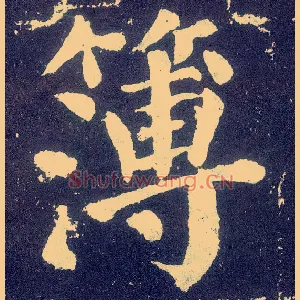 簿
Shufawang.CN